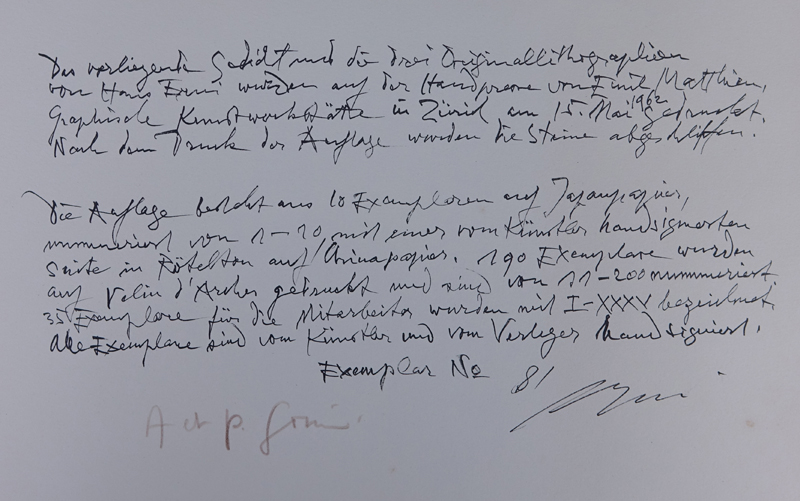 Das vorliegende Gedicht und die drei Originallithographien
von Hans Erni wurden auf der Handpresse von Emil Matthieu,
Graphische Kunstwerkstätte in Zürich am 15. Mai 1962 gedruckt.
Nach dem Druck der Auflage wurden die Steine abgeschliffen.
Die Auflage besteht aus 10 Exemplaren auf Japanpapier,
nummeriert von 1–10 mit einer vom Künstler handsignierten
Suite in Rötelton auf Chinapapier. 190 Exemplare wurden
auf Velin d'Arches gedruckt und sind von 11–200 nummeriert
35 Exemplare für die Mitarbeiter wurden mit I–XXXV bezeichnet.
Alle Exemplare sind vom Künstler und vom Verleger handsigniert.
Exemplar No 81
A et P. Gonin